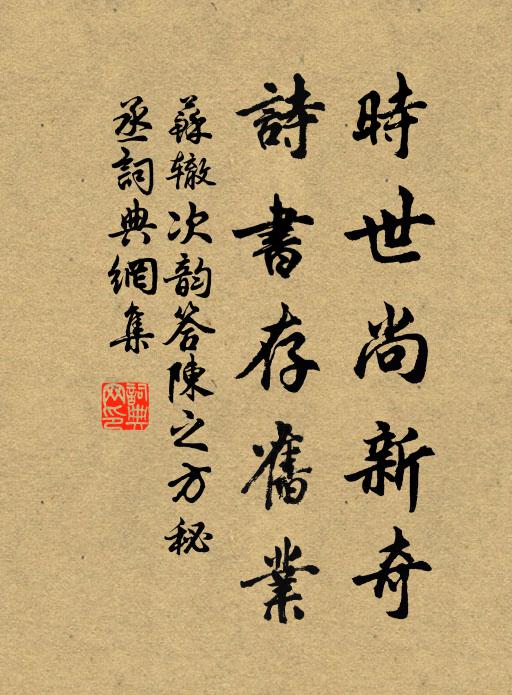 時世尚新奇
詩書存舊業
蘇辙次韵答陳之方秘
丞詞典網集
詞典
网印